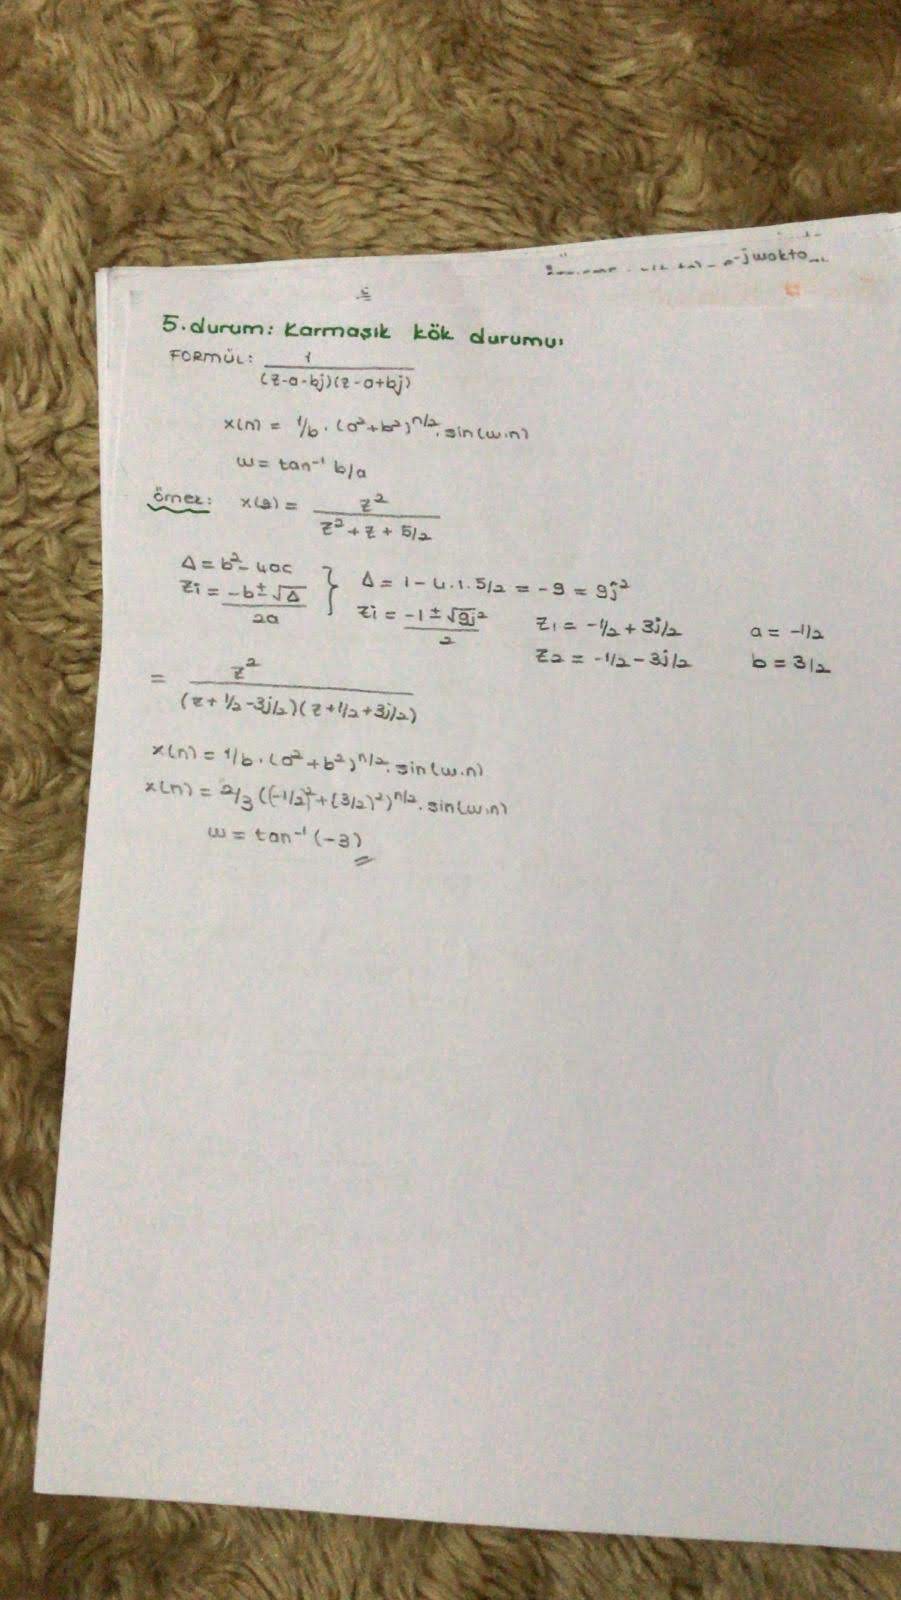 -jwokto
5. durum: Karmaşık kök durumu:
FORMÜL: 1 / (z-a-bj)(z-a+bj)
x(n) = 1/b . (a²+b²)^n/2 . sin(w.n)
w = tan⁻¹ b/a
örnek: x(z) = z² / z² + z + 5/2
Δ = b² - 4ac } Δ = 1 - 4.1.5/2 = -9 = 9j²
zi = -b ± √Δ / 2a } zi = -1 ± √9j² / 2 z₁ = -1/2 + 3j/2 a = -1/2
z2 = -1/2 - 3j/2 b = 3/2
= z² / (z+1/2-3j/2)(z+1/2+3j/2)
x(n) = 1/b . (a²+b²)^n/2 . sin(w.n)
x(n) = 2/3 ((-1/2)² + (3/2)²)^n/2 . sin(w.n)
w = tan⁻¹ (-3)